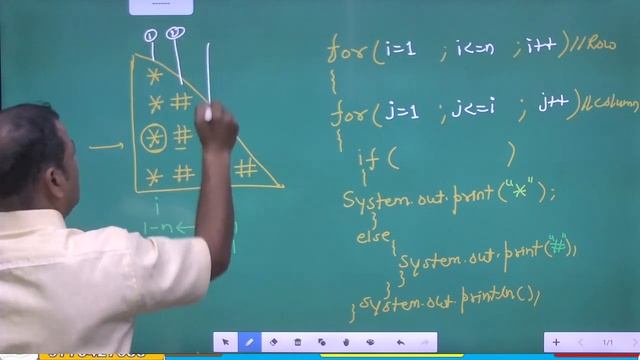 ① ②
*
* #
* #
* #   #
i
1-n ←
for( i=1 ; i<=n ; i++) //Row
{
for( j=1 ; j<=i ; j++) //Column
{
if(      )
{
System.out.print("*");
}
else
{
System.out.print("#");
}
}
System.out.println();
}
1/1